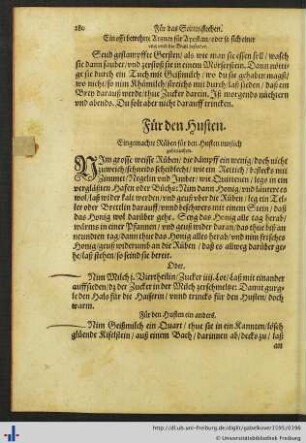 180 Für das Seitenstechen.
Ein offt bewehrte Artzney für
Seud gestampffte Gersten/ als wie man sie essen soll/ wasch
sie dann sauber/ vnd zerstoß sie in einem Mörserstein. Dann nöttige
sie durch ein Tuch mit Geißmilch/ wo du sie gehaben magst/
wo nicht/ so nim Khümilch/ streichs mit durch/ laß sieden/ daß ein
Brey darauß werde/ thue Zucker darein. Iß morgends nüchtern
vnd abends. Du solt aber nicht darauff trincken.
Für den Husten.
Eingemachte Rüben für den Husten nutzlich
zugebrauchen.
Nim grosse weisse Rüben/ die dämpff ein wenig/ doch nicht
zu weich/ schneids scheiblecht/ wie ein Rettich/ bestecks mit
Zimmet/ Negelen vnd Imber/ wie Quittenen/ legs in ein
verglästen Hafen oder Büchs: Nim dann Honig/ vnd läutere es
wol/ laß wider kalt werden/ vnd geuß vber die Rüben/ leg ein Teller
oder Brettlen darauff/ vnnd beschwers mit einem Stein/ daß
das Honig wol darüber gehe. Seyg das Honig alle tag herab/
wärms in einer Pfannen/ vnd geuß wider daran/ das thue biß an
neundten tag/ dann thue das Honig alles herab/ vnd nim frisches
Honig/ geuß widerumb an die Rüben/ daß es allweg darüber gehe/
laß stehen/ so seind sie bereit.
Oder.
Nim Milch j. Viertheilin/ Zucker iiij. Lot/ laß mit einander
auffsieden/ biß der Zucker in der Milch zerschmeltze: Damit gurgle
den Halß für die Haiserin/ vnnd trincks für den Husten/ doch
warm.
Für den Husten ein anders.
Nim Geißmilch ein Quart/ thue sie in ein Kannten/ lösch
glüende Kißelstein/ auß einem Bach/ darinnen ab/ decks zu/ laß
an
http://dl.ub.uni-freiburg.de/diglit/gabelkover1595/0196
© Universitätsbibliothek Freiburg